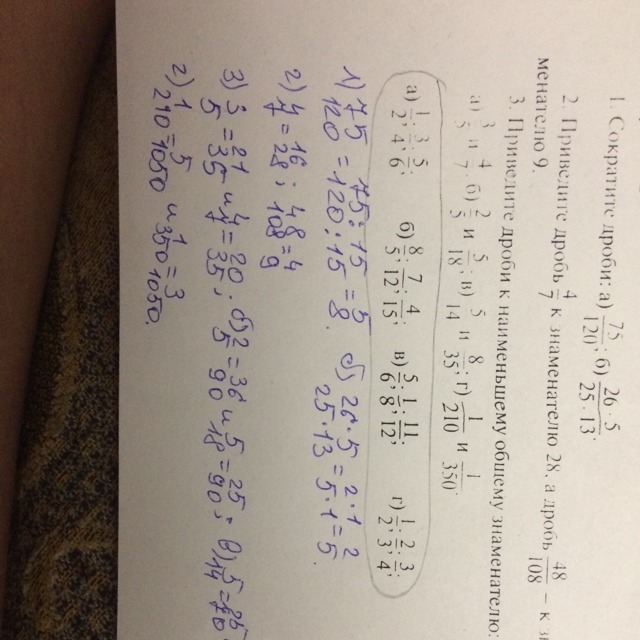 1. Сократите дроби: а) 75/120; б) 26·5/25·13;
2. Приведите дробь 4/7 к знаменателю 28, а дробь 48/108 – к зна
менателю 9.
3. Приведите дроби к наименьшему общему знаменателю:
а) 3/5 и 4/7; б) 2/5 и 5/18; в) 5/14 и 8/35; г) 1/210 и 1/350.
а) 1/2; 3/4; 5/6; б) 8/5; 7/12; 4/15; в) 5/6; 1/8; 11/12; г) 1/2; 2/3; 3/4;
1) 75/120 = 75:15/120:15 = 5/8. б) 26·5/25·13 = 2·1/5·1 = 2/5.
2) 4/7 = 16/28; 48/108 = 4/9
3) 3/5 = 21/35 и 4/7 = 20/35; б) 2/5 = 36/90 и 5/18 = 25/90; в) 5/14 = 25/70
г) 1/210 = 5/1050 и 1/350 = 3/1050.